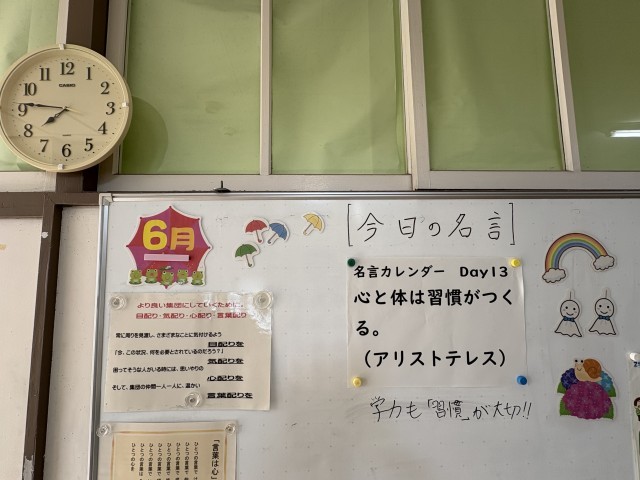 12
11
1
10
2
CASIO
9
3
8
4
7
5
6
6月
[今日の名言]
名言カレンダー　Day13
心と体は習慣がつく
る。
（アリストテレス）
学力も「習慣」が大切!!
より良い集団にしていくために、
目配り・気配り・心配り・言葉配り
常に周りを見渡し、さまざまなことに気付けるよう
目配りを
「今、この状況、何を必要とされているのだろう？」
気配りを
困ってそうな人がいる時には、思いやりの
心配りを
そして、集団の仲間一人一人に、温かい
言葉配りを
「言葉は心」
ひとつの言葉で
ひとつの言葉で
ひとつの言葉で
ひとつの言葉で
ひとつの心を